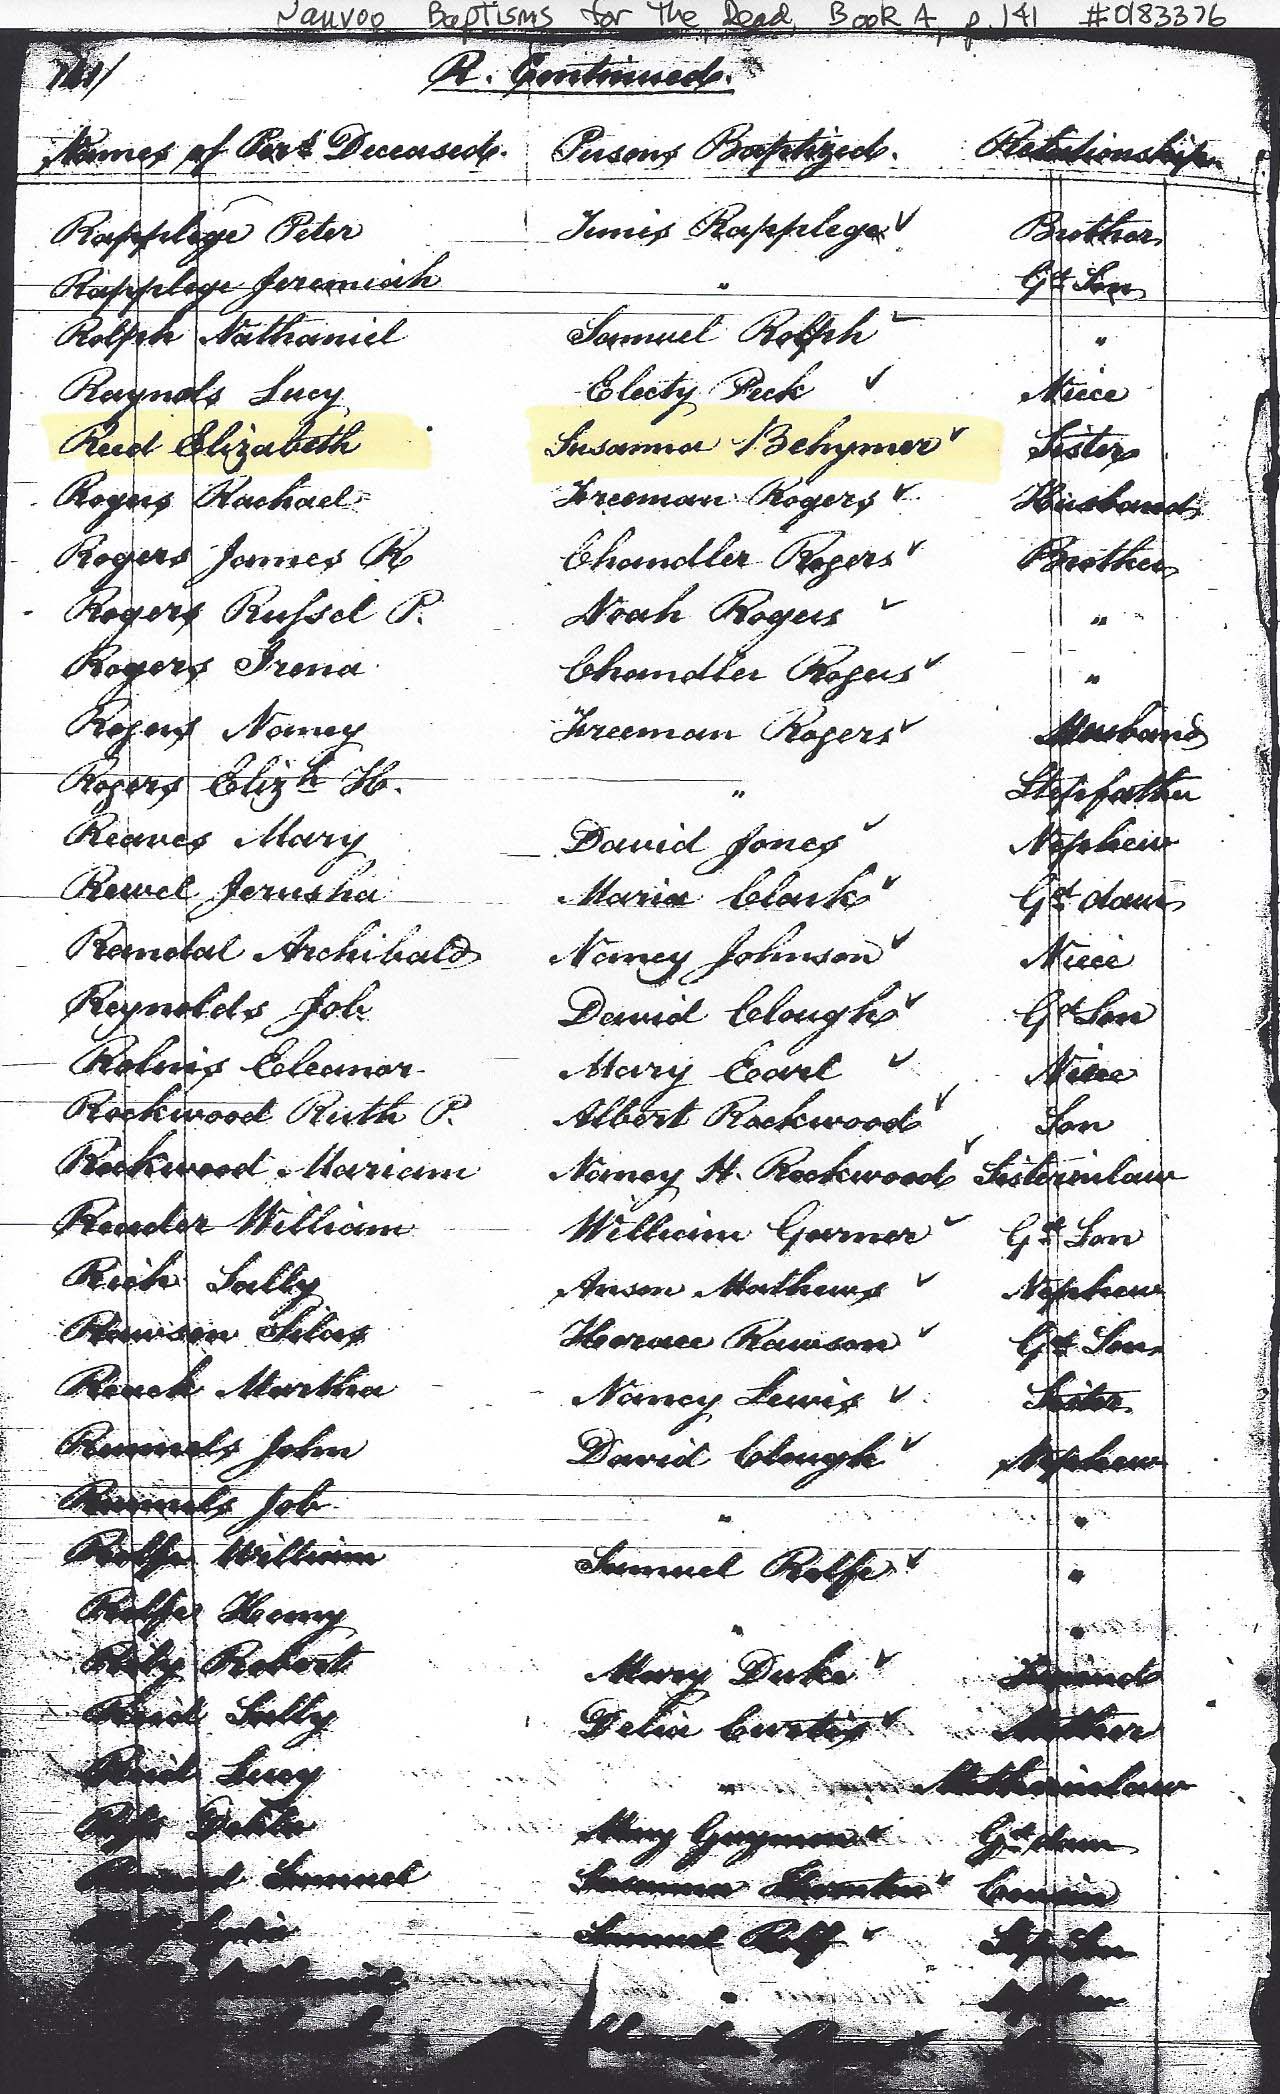 Nauvoo Baptisms for the Dead, Book A, p. 141 #0183376
141
R. Continued.
Names of Pers Deceased. Persons Baptized. Relationship
Rapplege Peter Tunis Rapplege Brother
Rapplege Jeremiah " Gd Son
Rolph Nathaniel Samuel Rolph "
Raynols Lucy Electy Peck Niece
Reed Elizabeth Susanna Behymer Sister
Rogers Rachael Freeman Rogers Husband
Rogers James R Chandler Rogers Brother
Rogers Russel P. Noah Rogers "
Rogers Irena Chandler Rogers "
Rogers Nancy Freeman Rogers Husband
Rogers Elizh H. " Stepfather
Reaves Mary David Jones Nephew
Rewel Jerusha Maria Clark Gd daur
Randal Archibald Nancy Johnson Niece
Reynolds Job David Clough Gd Son
Eleanor Mary Earl Niece
Rockwood Ruth P. Albert Rockwood Son
Rockwood Mariam Nancy H. Rockwood Sisterinlaw
Reader William William Garner Gd Son
Rich Sally Anson Mathews Nephew
Rawson Silas Horace Rawson Gd Son
Martha Nancy Lewis Sister
Runnels John David Clough Nephew
Runnels Job " "
Rolfe William Samuel Rolfe "
Rolfe Henry " "
Rily Robert Mary Duke Friend
Reid Sally Delia Curtis Mother
Reid Lucy " Motherinlaw
Mary Guymon Gd daur
Samuel Susanna Cousin
Lydia Samuel Rolf Step Son
"